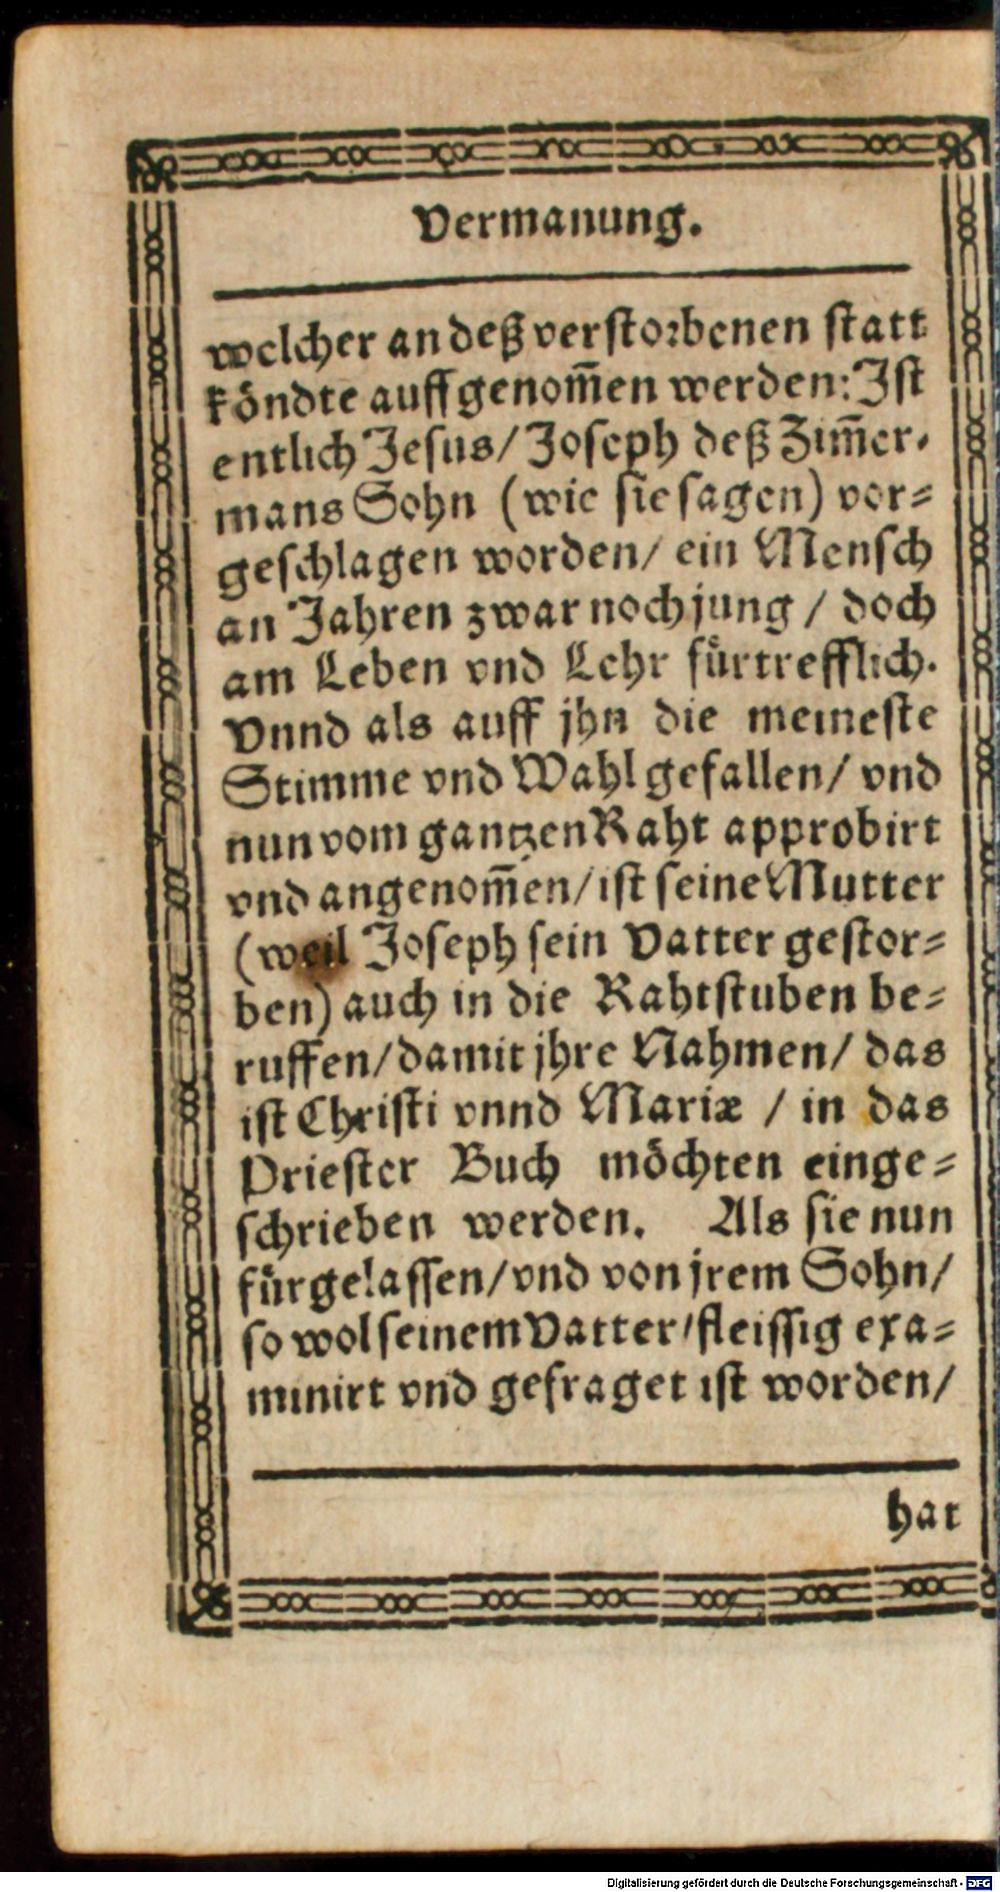 Vermanung.
welcher an deß verstorbenen statt
köndte auffgenom̃en werden: Ist
entlich Jesus/ Joseph deß Zim̃er-
mans Sohn (wie sie sagen) vor-
geschlagen worden/ ein Mensch
an Jahren zwar noch jung / doch
am Leben vnd Lehr fürtrefflich.
Vnnd als auff jhn die meineste
Stimme vnd Wahl gefallen/ vnd
nun vom gantzen Raht approbirt
vnd angenom̃en/ ist seine Mutter
(weil Joseph sein Vatter gestor-
ben) auch in die Rahtstuben be-
ruffen/ damit jhre Nahmen/ das
ist Christi vnnd Mariæ / in das
Priester Buch möchten einge-
schrieben werden. Als sie nun
fürgelassen/ vnd von jrem Sohn/
so wol seinem Vatter/ fleissig exa-
minirt vnd gefraget ist worden/
hat
Digitalisierung gefördert durch die Deutsche Forschungsgemeinschaft - DFG